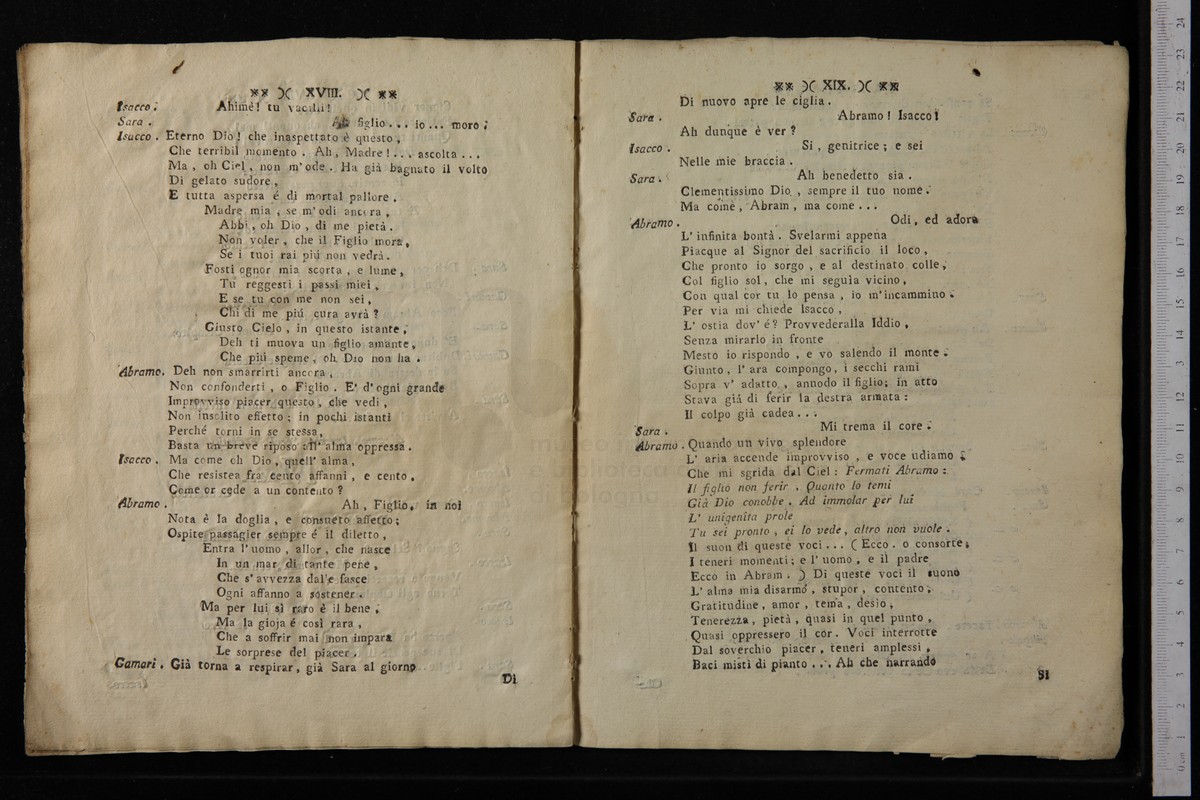 ** )( XVIII. )( **
Isacco. Ahimè! tu vacilli!
Sara. Ah figlio... io... moro;
Isacco. Eterno Dio! che inaspettato è questo,
Che terribil momento. Ah, Madre!... ascolta...
Ma, oh Ciel, non m'ode. Ha già bagnato il volto
Di gelato sudore,
E tutta aspersa é di mortal pallore.
Madre mia, se m'odi ancora,
Abbi, oh Dio, di me pietà.
Non voler, che il Figlio mora,
Se i tuoi rai più non vedrà.
Fosti ognor mia scorta, e lume,
Tu reggesti i passi miei,
E se tu con me non sei,
Chi di me piú cura avrà?
Giusto Cielo, in questo istante,
Deh ti muova un figlio amante,
Che piú speme, oh Dio non ha.
Abramo. Deh non smarrirti ancora,
Non confonderti, o Figlio. E' d'ogni grande
Improvviso piacer questo, che vedi,
Non insolito effetto; in pochi istanti
Perché torni in se stessa,
Basta un breve riposo all'alma oppressa.
Isacco. Ma come oh Dio, quell'alma,
Che resistea fra cento affanni, e cento,
Come or cede a un contento?
Abramo. Ah, Figlio, in noi
Nota è la doglia, e consueto affetto;
Ospite passagier sempre é il diletto,
Entra l'uomo, allor, che nasce
In un mar di tante pene,
Che s'avvezza dalle fasce
Ogni affanno a sostener.
Ma per lui sì raro è il bene,
Ma la gioja é così rara,
Che a soffrir mai non impara
Le sorprese del piacer.
Gamari. Già torna a respirar, già Sara al giorno
Di
** )( XIX. )( **
Di nuovo apre le ciglia.
Sara. Abramo! Isacco!
Ah dunque è ver?
Isacco. Si, genitrice; e sei
Nelle mie braccia.
Sara. Ah benedetto sia.
Clementissimo Dio, sempre il tuo nome.
Ma come, Abram, ma come...
Abramo. Odi, ed adora
L'infinita bontà. Svelarmi appena
Piacque al Signor del sacrificio il loco,
Che pronto io sorgo, e al destinato colle,
Col figlio sol, che mi seguìa vicino,
Con qual cor tu lo pensa, io m'incammino.
Per via mi chiede Isacco,
L'ostia dov'é? Provvederalla Iddio,
Senza mirarlo in fronte
Mesto io rispondo, e vo salendo il monte.
Giunto, l'ara compongo, i secchi rami
Sopra v'adatto, annodo il figlio; in atto
Stava giá di ferir la destra armata:
Il colpo già cadea...
Sara. Mi trema il core.
Abramo. Quando un vivo splendore
L'aria accende improvviso, e voce udiamo
Che mi sgrida dal Ciel: Fermati Abramo:
Il figlio non ferir. Quanto lo temi
Già Dio conobbe, Ad immolar per lui
L'unigenita prole
Tu sei pronto, ei lo vede, altro non vuole.
Il suon di queste voci... (Ecco. o consorte,
I teneri momenti; e l'uomo, e il padre
Ecco in Abram.) Di queste voci il suono
L'alma mia disarmó, stupor, contento,
Gratitudine, amor, tema, desìo,
Tenerezza, pietà, quasi in quel punto,
Quasi oppressero il cor. Voci interrotte
Dal soverchio piacer, teneri amplessi,
Baci misti di pianto... Ah che narrando
Si